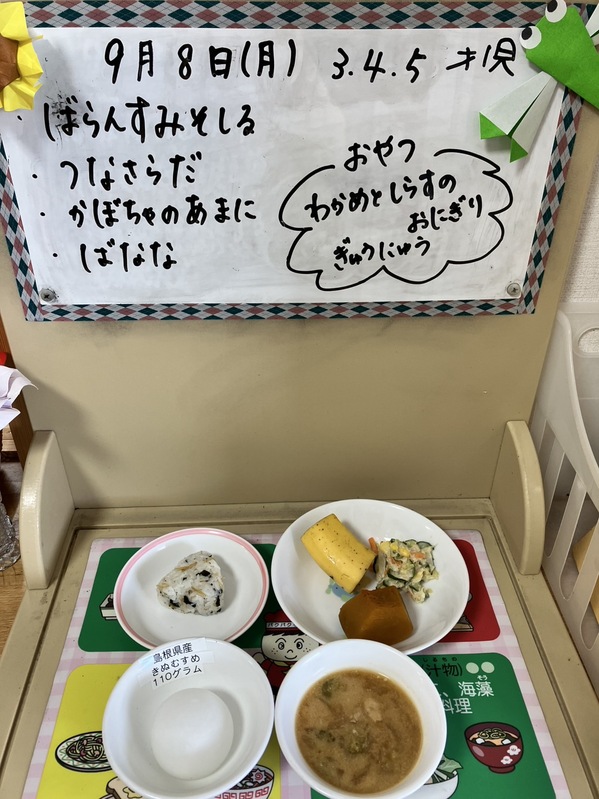 9月8日(月) 3.4.5才児
・ばらんすみそしる
・つなさらだ
・かぼちゃのあまに
・ばなな
おやつ
わかめとしらすの
おにぎり
ぎゅうにゅう
島根県産
きぬむすめ
110グラム
汁物)
、海藻
そう
料理